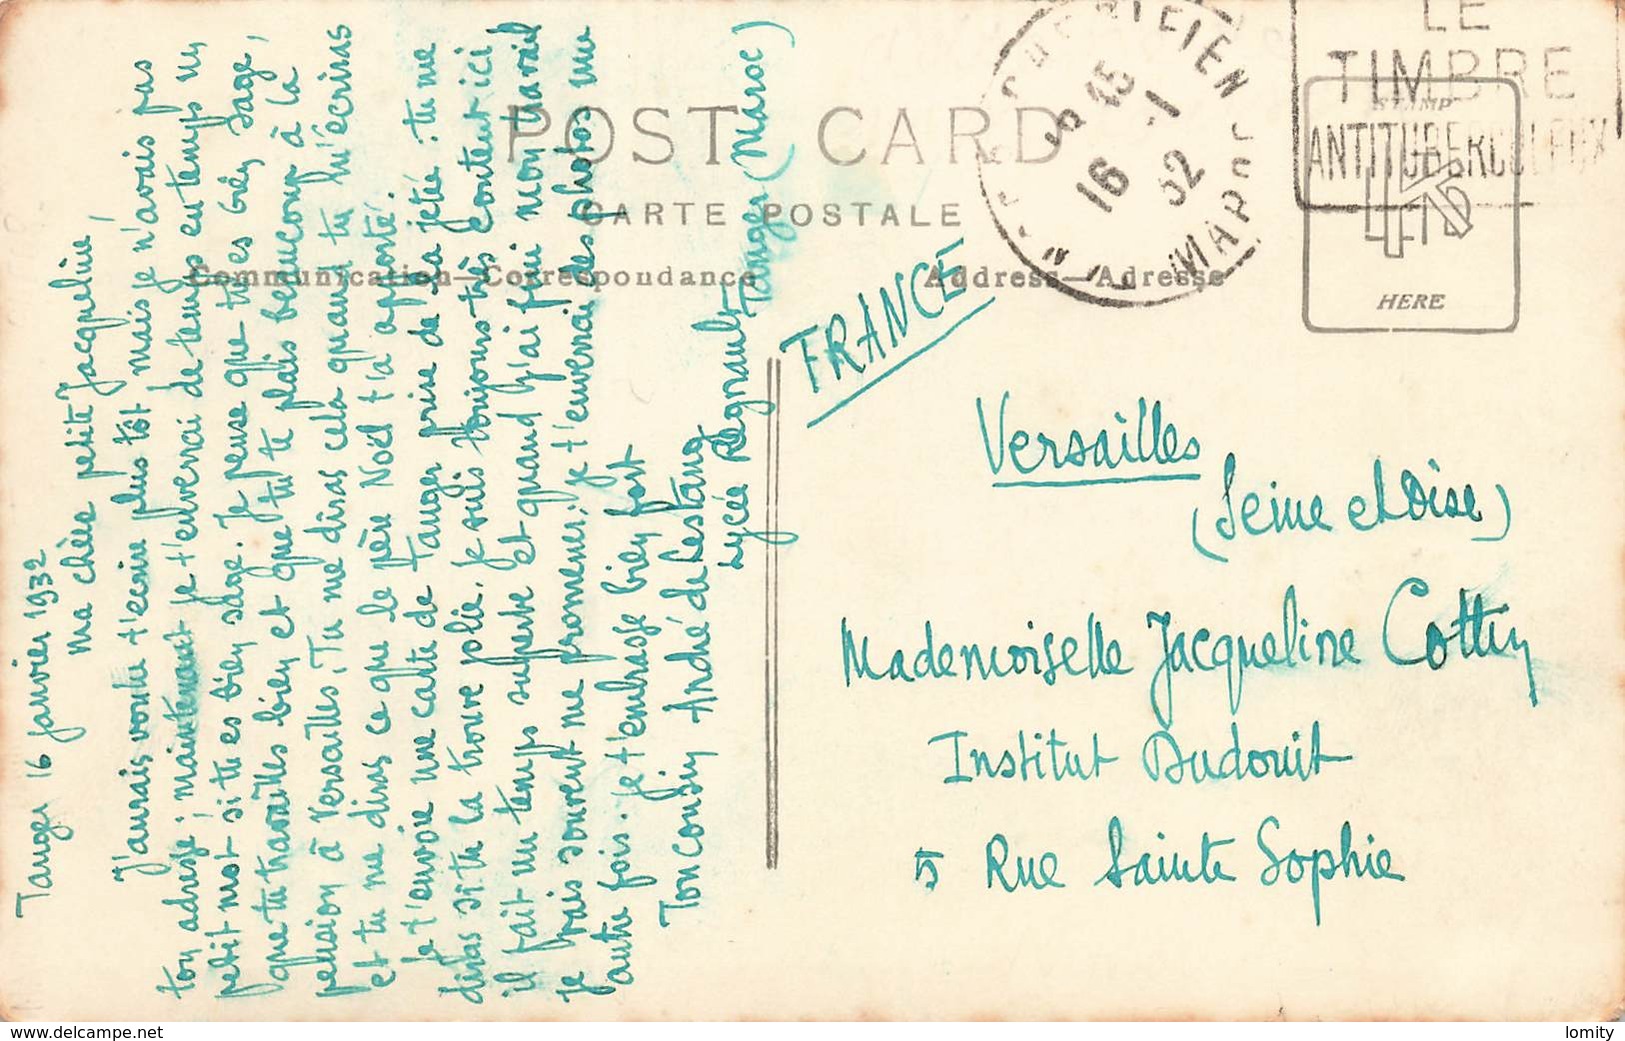 POST CARD
CARTE POSTALE
Communication—Correspondance
Address—Adresse
STAMP
HERE
LE
TIMBRE
ANTITUBERCULEUX
16 45
16 -1
32
MAROC
Tanger 16 janvier 1932
ma chère petite Jacqueline,
J'aurais voulu t'écrire plus tôt mais je n'avais pas
ton adresse; maintenant je t'enverrai de temps en temps un
petit mot si tu es bien sage. Je pense que tu es très sage,
que tu travailles bien et que tu te plais beaucoup à la
pension à Versailles. Tu me diras cela quand tu m'écriras
et tu me diras ce que le père Noël t'a apporté.
Je t'envoie une carte de Tanger prise de la jetée: tu me
diras si tu la trouve jolie. Je suis toujours très content ici,
il fait un temps superbe et quand j'ai fini mon travail
je vais souvent me promener; je t'enverrai des photos une
autre fois. Je t'embrasse bien fort
Ton cousin André de Lestang
Lycée Regnault Tanger (Maroc)
FRANCE
Versailles
(Seine et Oise)
Mademoiselle Jacqueline Cottin
Institut Dudouit
5 Rue Sainte Sophie
www.delcampe.net
lomity